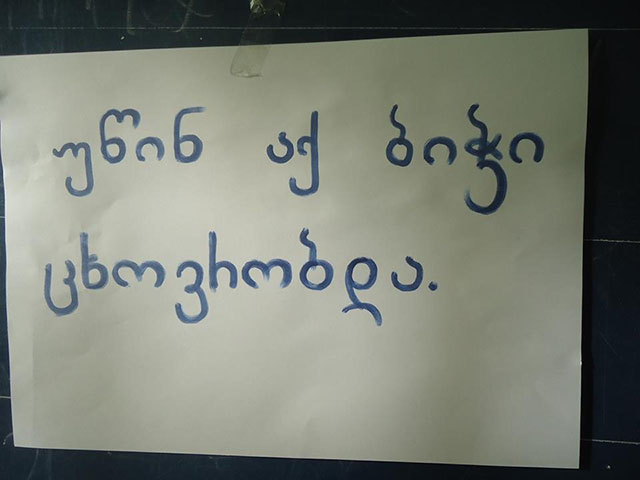 უწინ აქ ბიჭი
ცხოვრობდა.